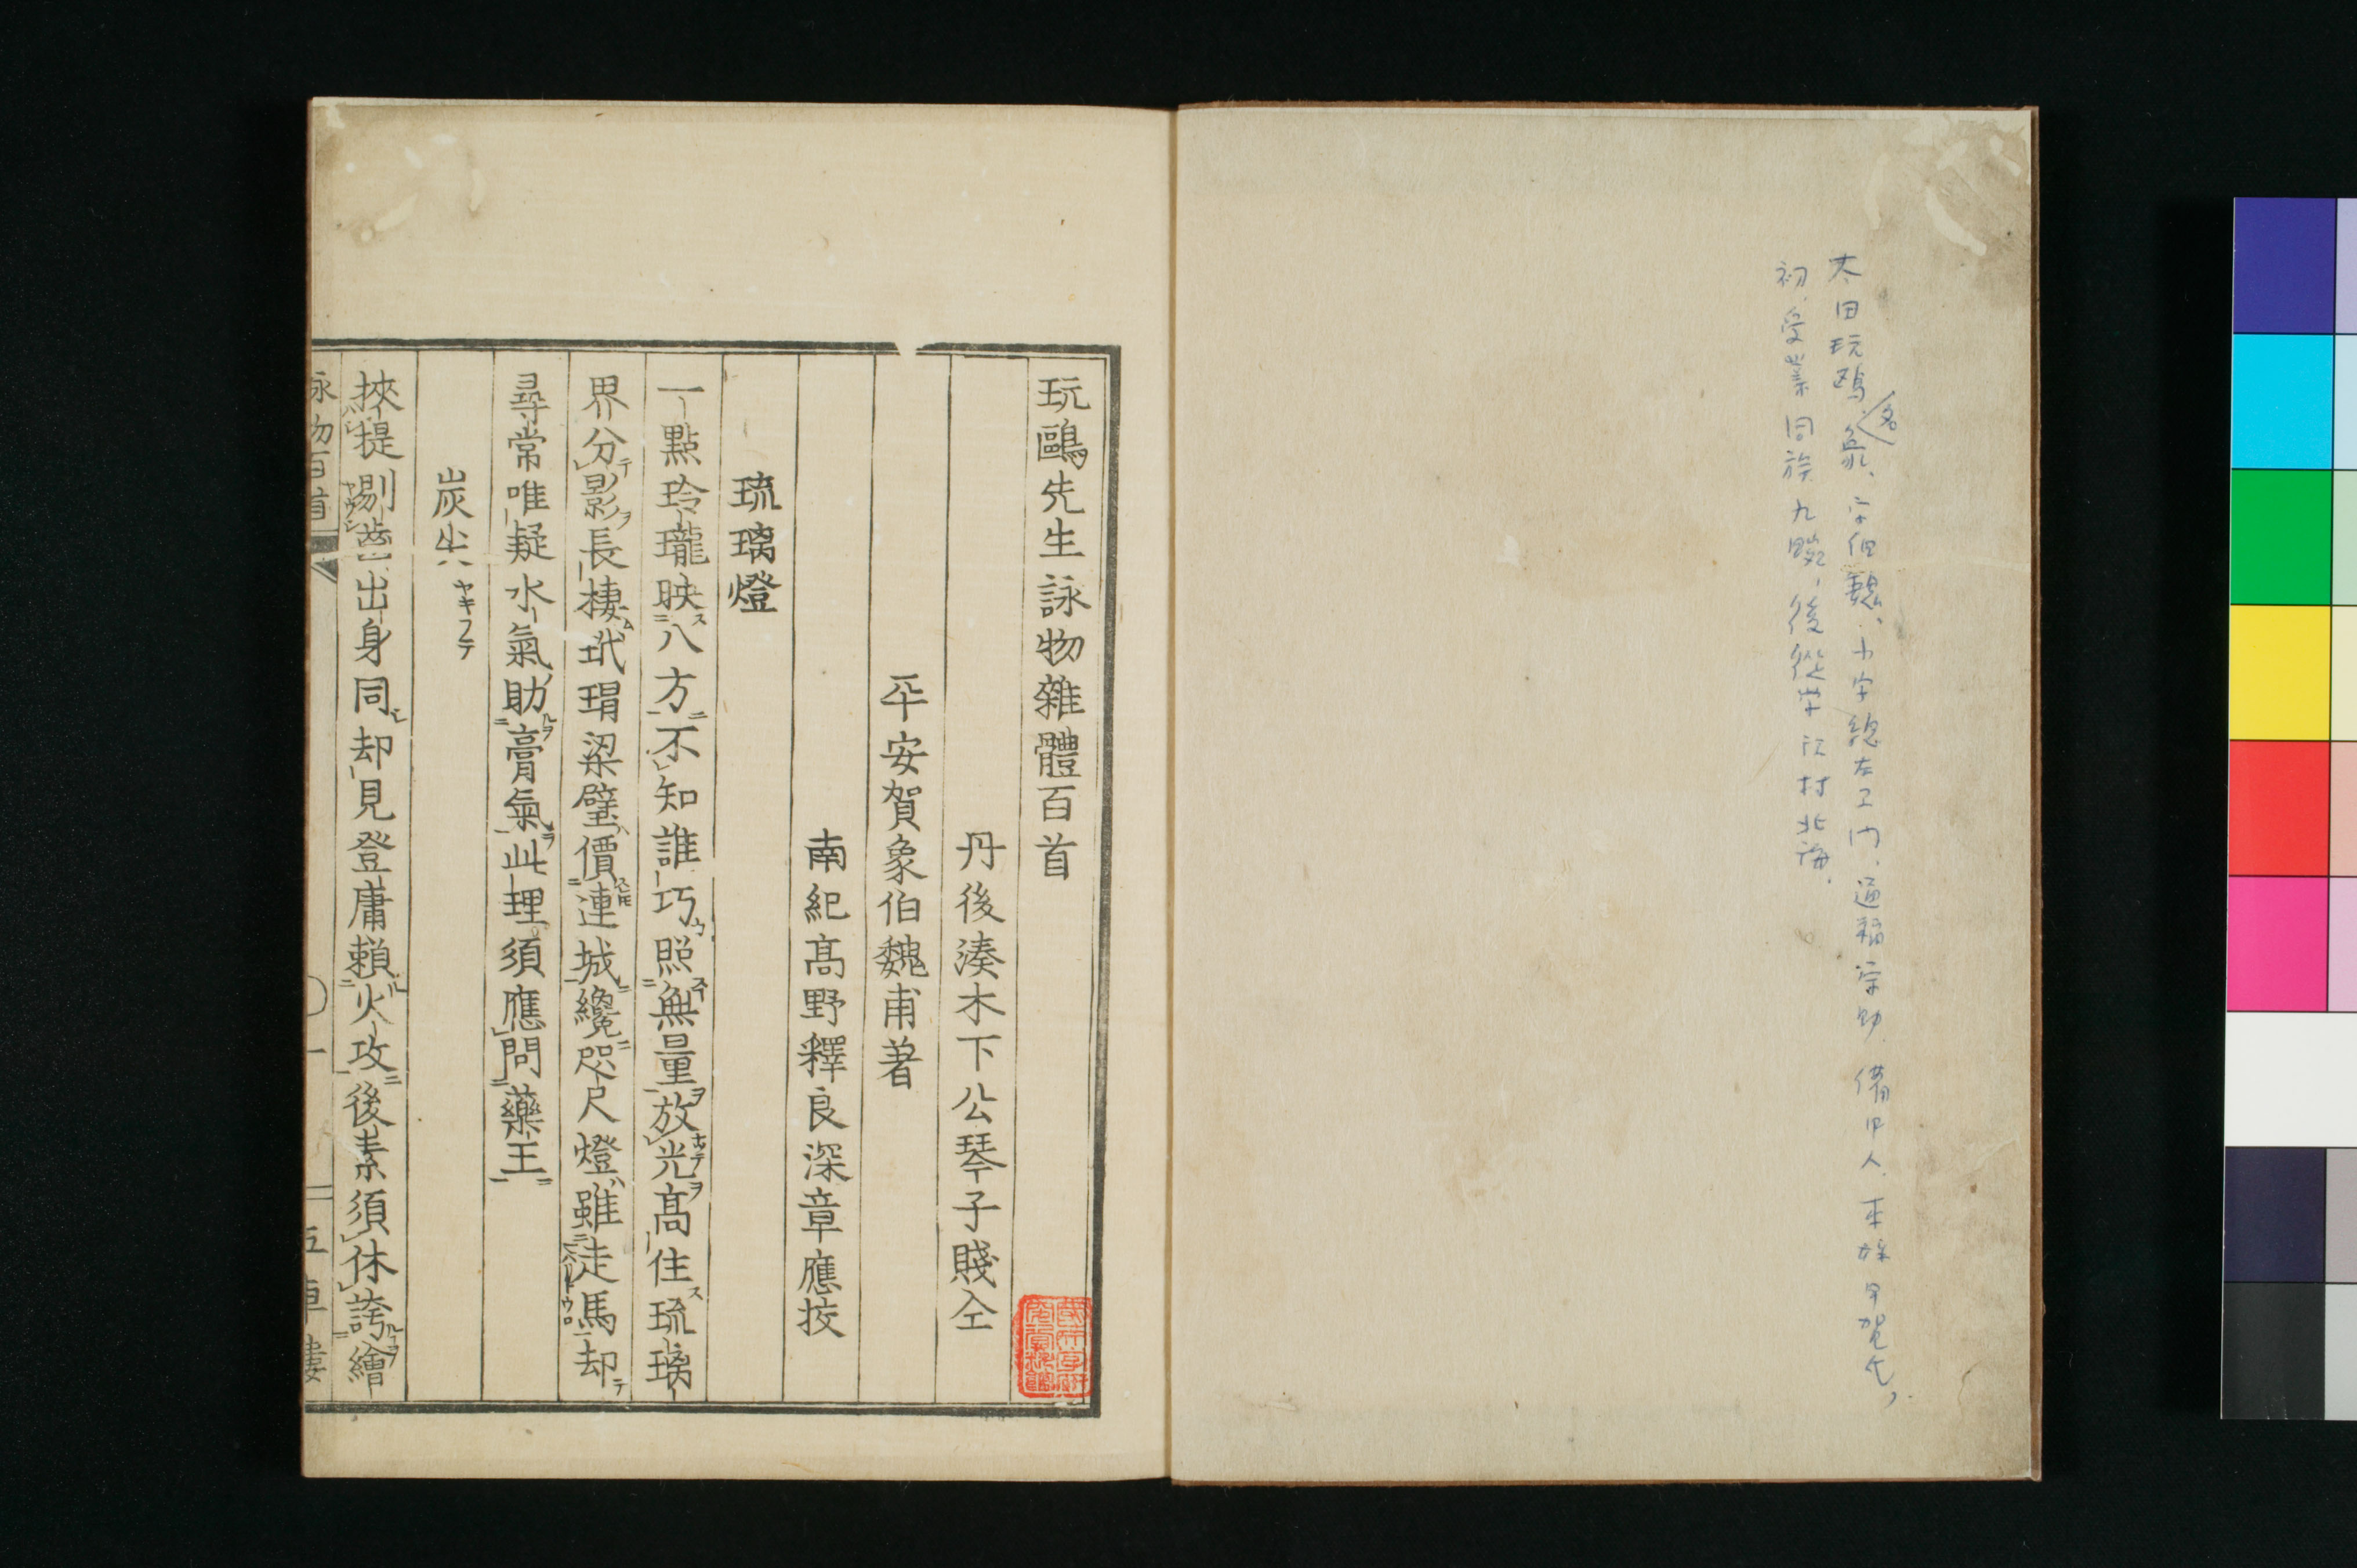 太田玩鷗名象、字伯魏、小字総左エ門、通稱宗助 備中人、本姓甲賀氏、
初受業同族九皦、後從学江村北海、
玩鷗先生詠物雜體百首
丹後湊木下公琴子賤仝
平安賀象伯魏甫著
南紀髙野釋良深章應挍
琉璃燈
一點玲瓏映八方不知誰巧照無量放光髙住琉璃
界分影長棲玳瑁梁璧價連城纔咫尺燈雖走馬却
尋常唯疑水氣助膏氣此理須應問藥王
炭尖 ヤキフデ
挾提剔齒出身同却見登庸賴火攻後素須休誇繪
詠物百首 一 五車樓